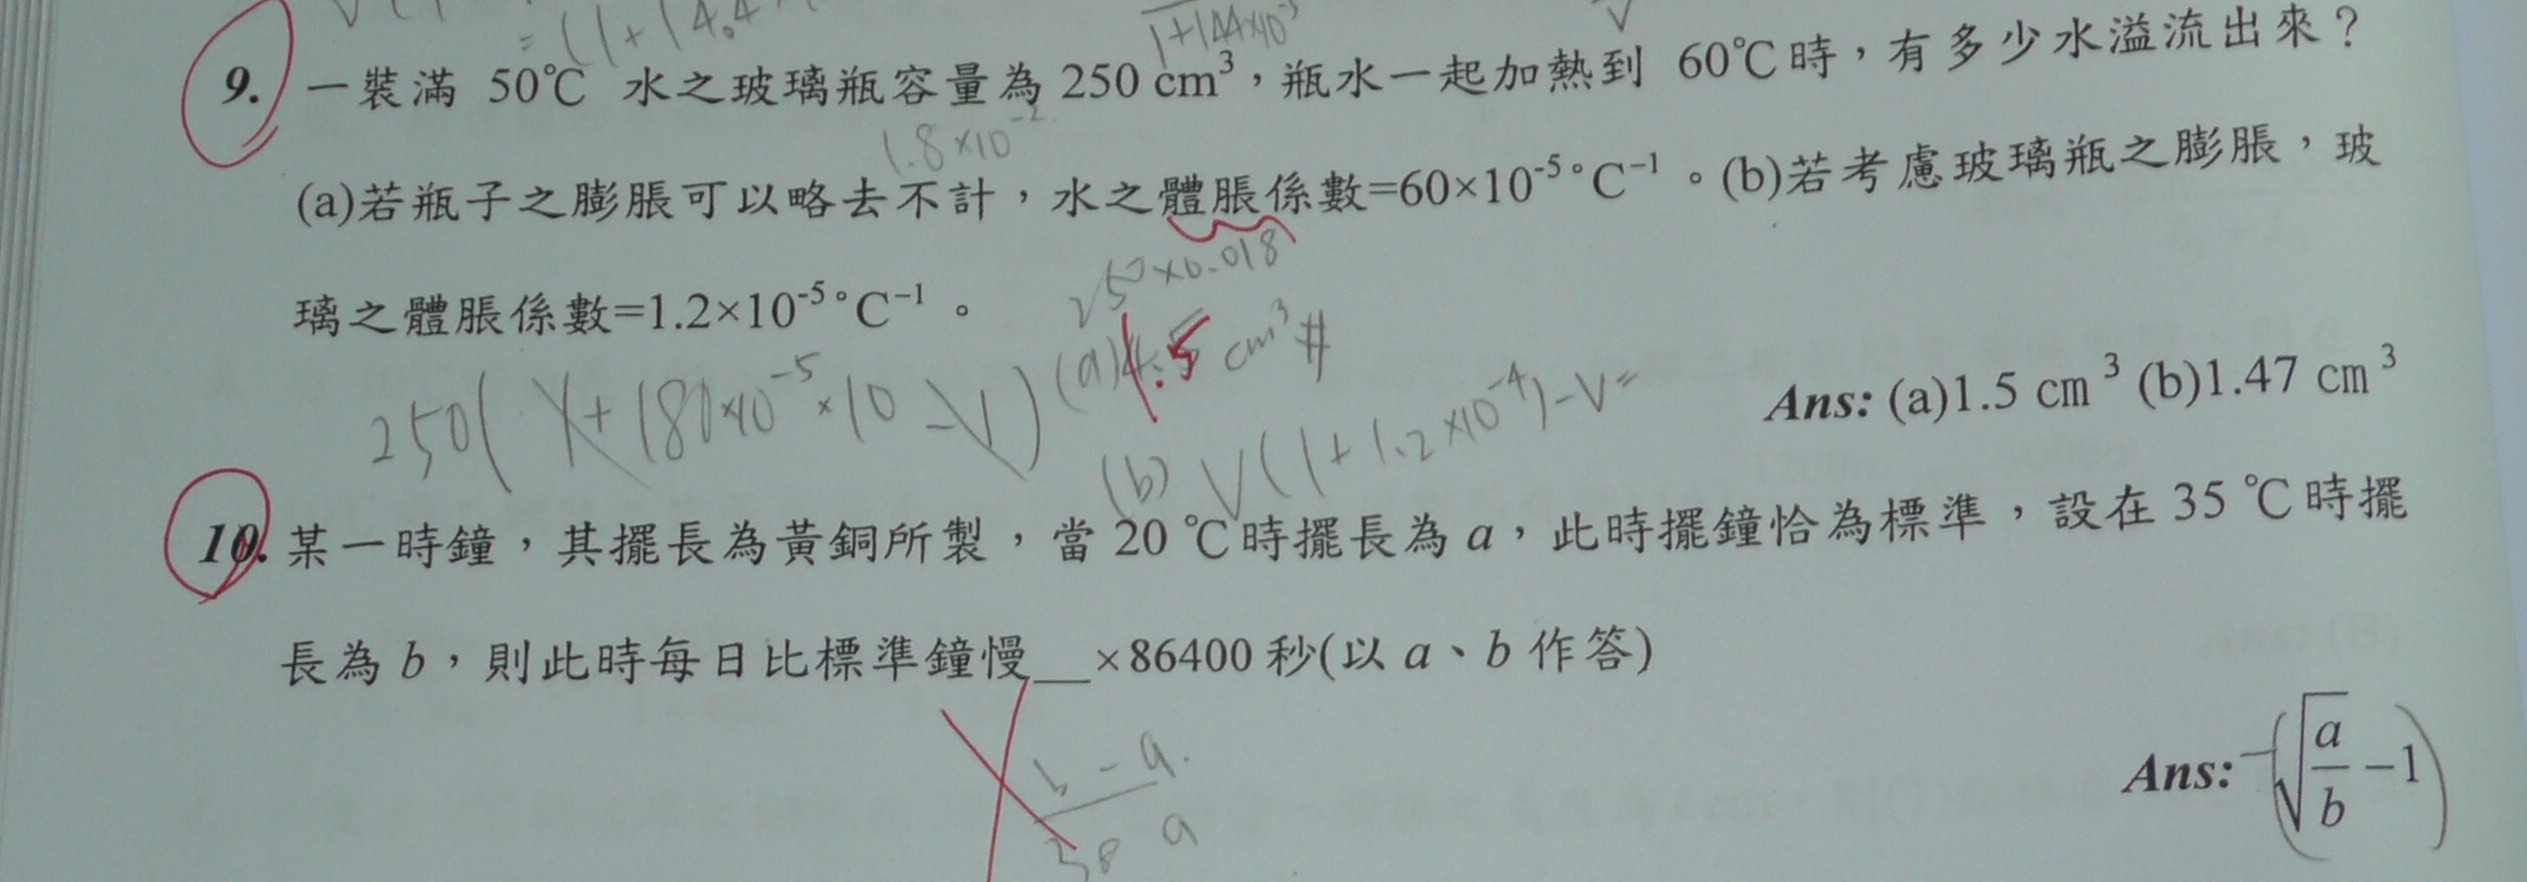 = (1+14.4
1+144×10⁻⁵
V
9. 一裝滿 50℃ 水之玻璃瓶容量為 250 cm³,瓶水一起加熱到 60℃時,有多少水溢流出來?
1.8×10⁻²
(a)若瓶子之膨脹可以略去不計,水之體脹係數=60×10⁻⁵°C⁻¹。(b)若考慮玻璃瓶之膨脹,玻
璃之體脹係數=1.2×10⁻⁵°C⁻¹。
250×0.018
(a) 1.5 cm³ #
250( 1+180×10⁻⁵×10 -V)
Ans: (a)1.5 cm³ (b)1.47 cm³
(b) V(1+1.2×10⁻⁴)-V=
10. 某一時鐘,其擺長為黃銅所製,當 20 ℃時擺長為 a,此時擺鐘恰為標準,設在 35 ℃時擺
長為 b,則此時每日比標準鐘慢__×86400 秒(以 a、b 作答)
b-a
a
Ans: -(√(a/b) -1)